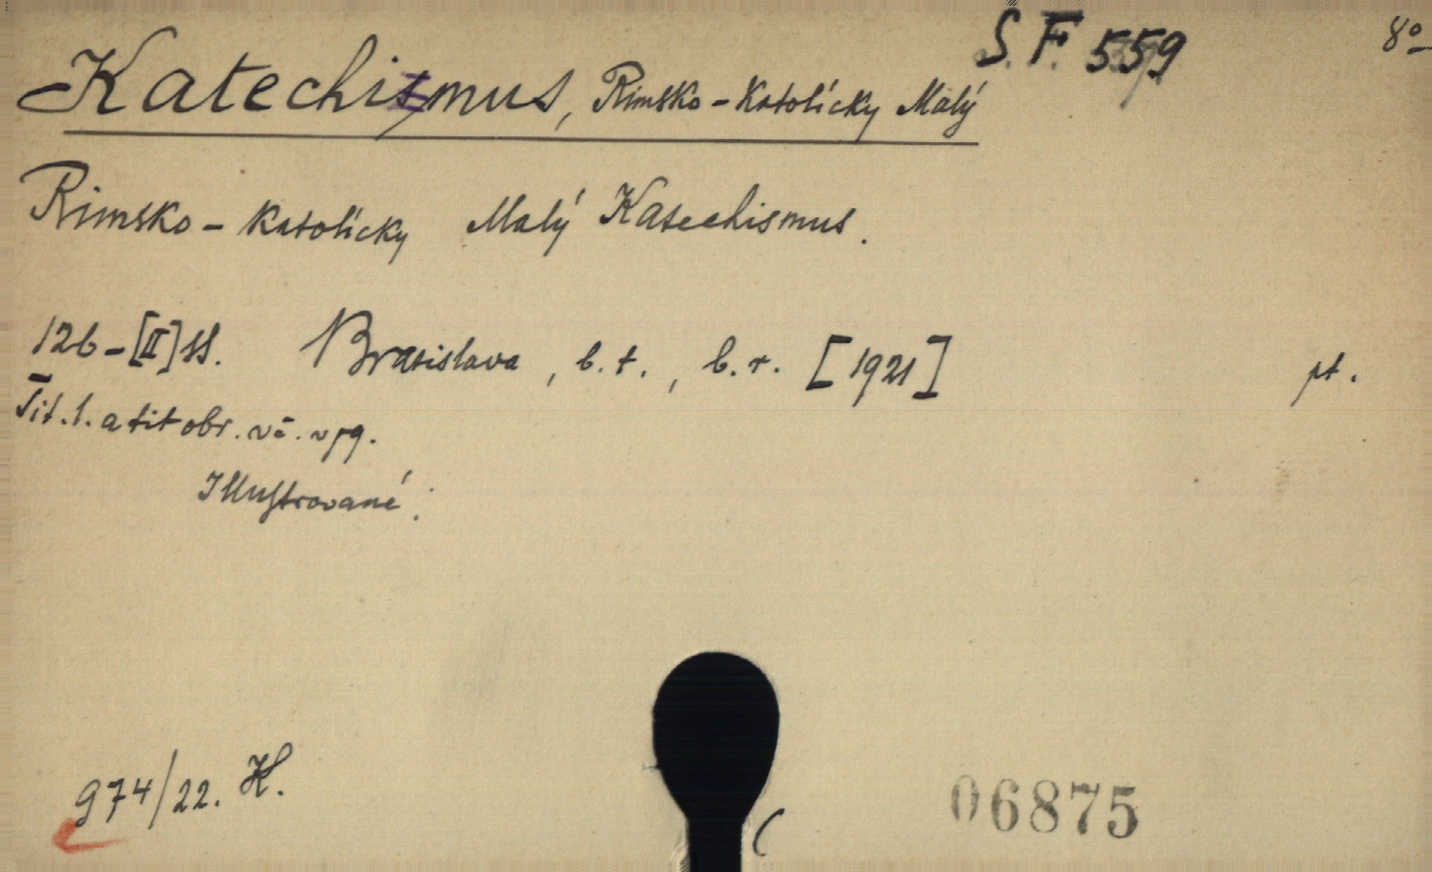 S. F. 559 8º
Katechizmus, Rimsko-Katolícky Malý
Rimsko-Katolícky Malý Katechismus.
126-[II] ss. Bratislava, b. t., b. r. [1921] pt.
Tit. l. a tit obr. vč. v pg.
Illustrované.
974/22. H.
06875